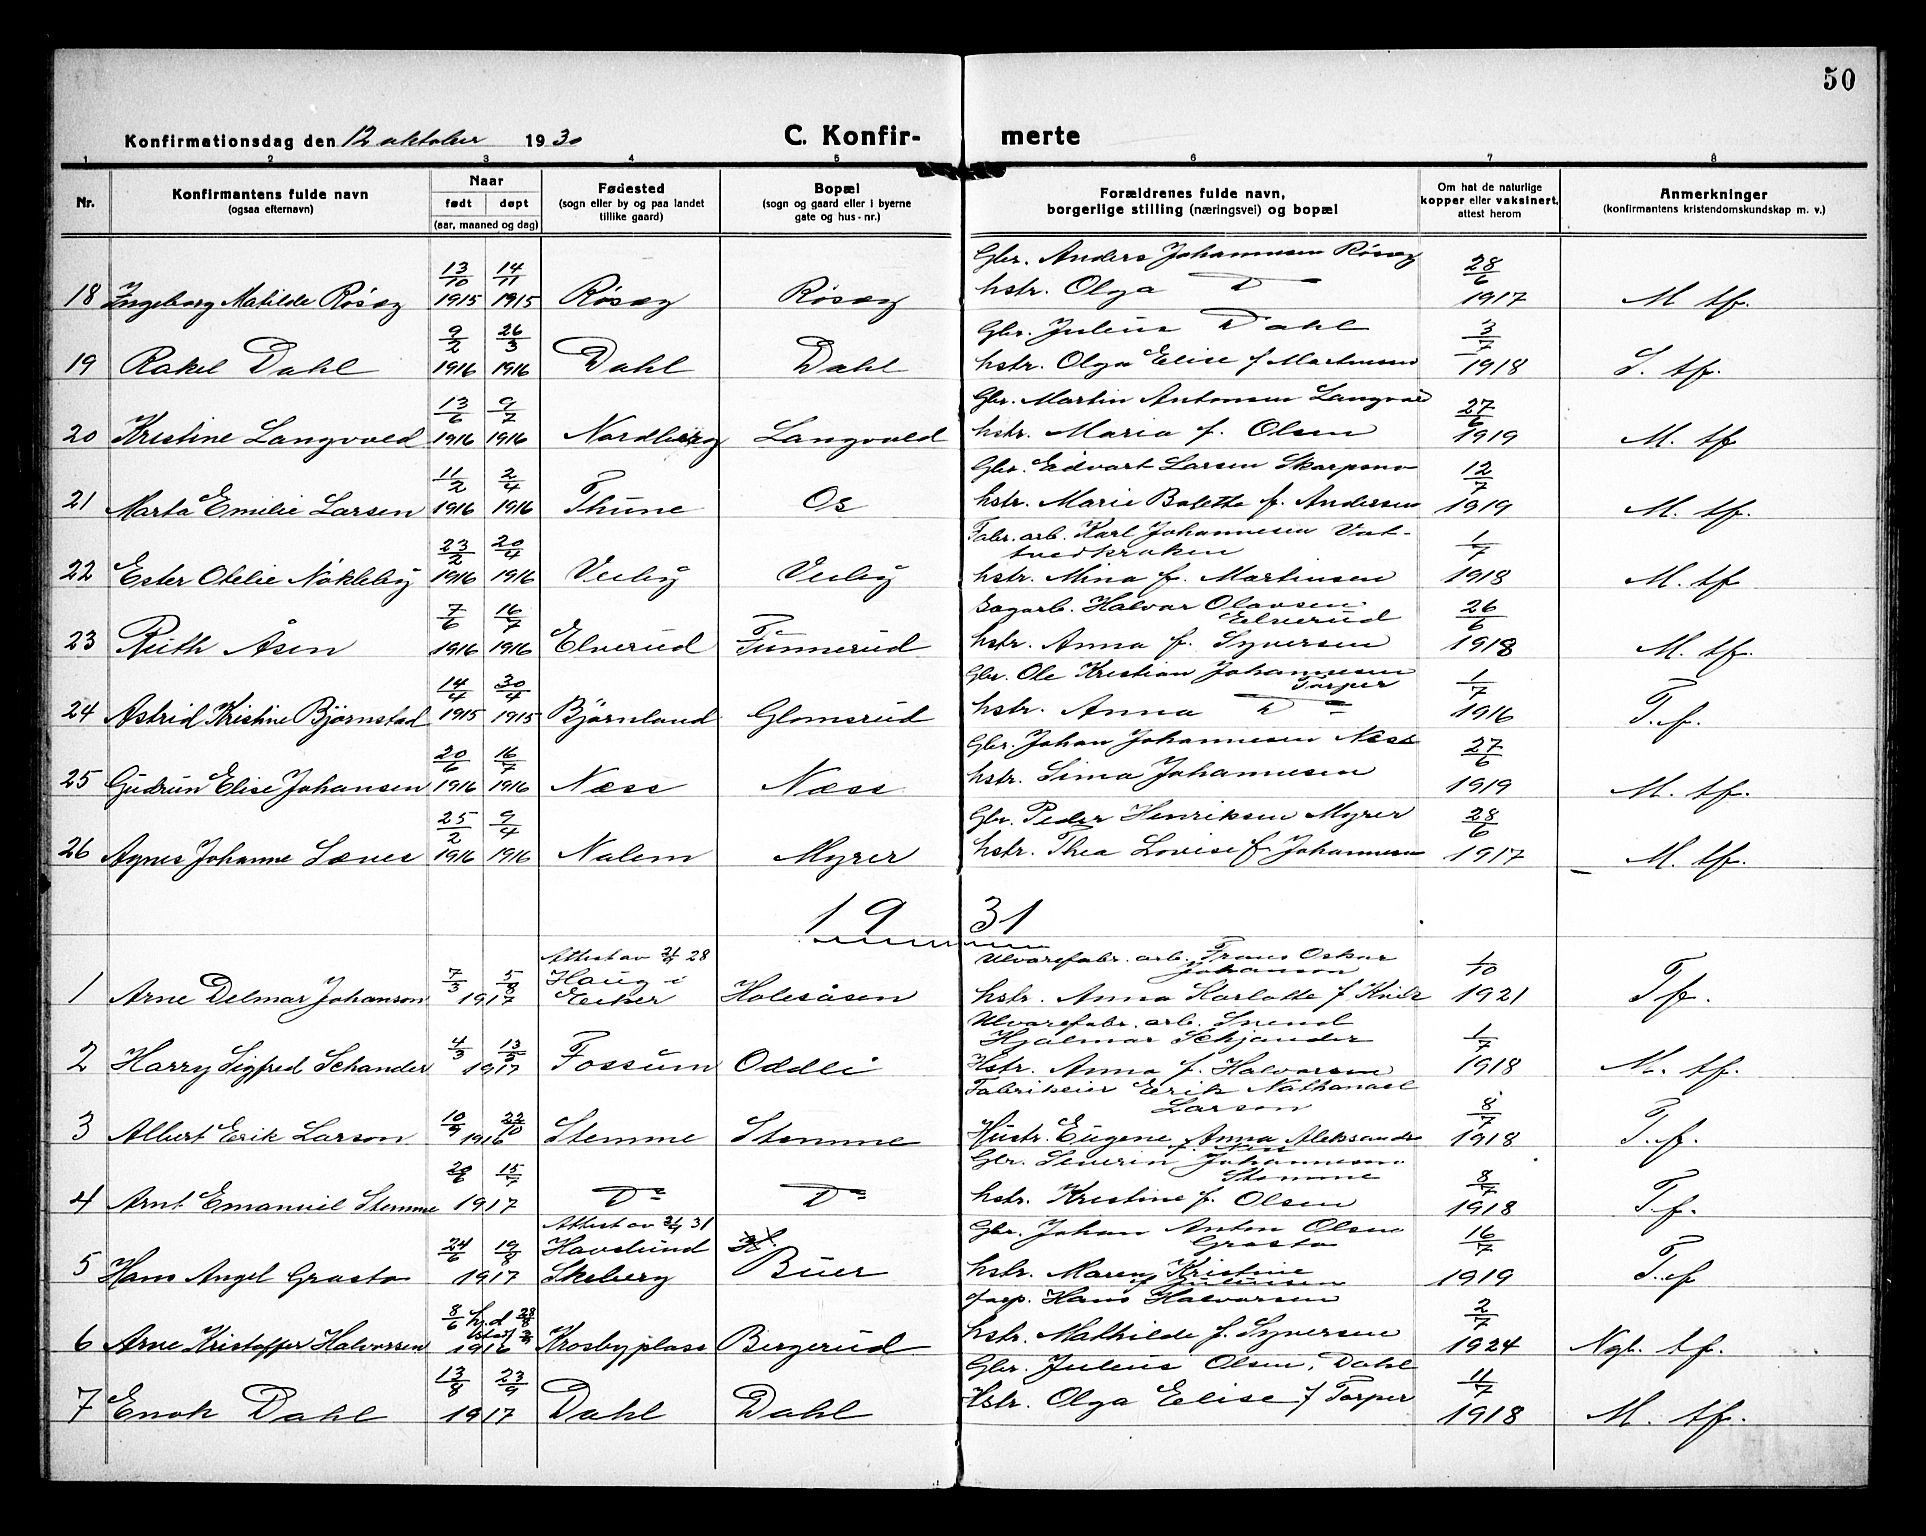 50
Konfirmationsdag den 12 oktober 1930
C. Konfir- merte
1 2 3 4 5 6 7 8
Nr.
Konfirmantens fulde navn
(ogsaa efternavn)
Naar
født døpt
(aar, maaned og dag)
Fødested
(sogn eller by og paa landet
tillike gaard)
Bopæl
(sogn og gaard eller i byerne
gate og hus-nr.)
Forældrenes fulde navn,
borgerlige stilling (næringsvei) og bopæl
Om hat de naturlige
kopper eller vaksinert,
attest herom
Anmerkninger
(konfirmantens kristendomskundskap m. v.)
13/10 14/11 Gbr. Anders Johannesen Røsæg 28/6
18 Ingeborg Matilde Røsæg 1915 1915 Røsæg Røsæg hstr. Olga Do 1917 M. tf.
9/2 26/3 Gbr. Julius Dahl 3/7
19 Rakel Dahl 1916 1916 Dahl Dahl hstr. Olga Elise f Martinsen 1918 S. tf.
13/6 9/7 Gbr. Martin Antonsen Langvæd 27/6
20 Kristine Langvæd 1916 1916 Nordberg Langvæd hstr. Maria f. Olsen 1919 M. tf
11/2 2/4 Gbr. Edvart Larsen Skarpsno 12/7
21 Marta Emilie Larsen 1916 1916 Thune Os hstr. Marie Bolette f. Andersen 1919 M. tf.
23/2 20/4 Fabr. arb. Karl Johannesen Vat-
tvedkroken 1/7
22 Ester Otelie Nøkleby 1916 1916 Veeby Veeby hstr. Mina f. Martinsen 1918 M. tf
7/6 16/7 Sagarb. Halvar Olavsen
Elverud 26/6
23 Ruth Åsen 1916 1916 Elverud Tunnerud hstr. Anna f. Syversen 1918 M. tf.
14/4 30/4 Gbr. Ole Kristian Johannesen
Torper 1/7
24 Astrid Kristine Bjørnstad 1915 1915 Bjørnland Glomsrud hstr. Anna Do 1916 T. f.
20/6 16/7 Gbr. Johan Johannesen Næss 27/6
25 Gudrun Elise Johansen 1916 1916 Næss Næss hstr. Sina Johannesen 1919 M. tf.
25/2 9/4 Gbr. Peder Henriksen Myrer 28/6
26 Agnes Johanne Sæves 1916 1916 Nalem Myrer hstr. Thea Lovise f Johannesen 1917 M. tf.
19 31
Attest av 28 Ulvarefabr. arb. Frans Oskar
7/3 5/8 Haug i Johanson 1/10
1 Arne Delmar Johanson 1917 Eeker Holesåsen hstr. Anna Karlotte f 1921 Tf.
Ulvarefabr. arb. Svend
4/3 13/5 Hjalmar Schjander 1/7
2 Harry Sigfred Schander 1917 Fossum Oddli Hstr. Anna f. Halvorsen 1918 M. tf.
Fabrikeier Erik Nathanael
10/9 22/10 Larson 8/7
3 Albert Erik Larson 1916 Stemme Stemme Hustr. Eugene Anna Aleksandr 1918 T. f.
20/6 15/7 Gbr. Severin Johannesen
Stemme 8/7
4 Arnt Emanuel Stemme 1917 Do Do hstr. Kristine f. Olsen 1918 T. f.
Attest av 31 Gbr. Johan Anton Olsen
24/6 19/8 Havslund Grasto 16/7
5 Hans Angel Grasto 1917 Skeberg Buer hstr. Maren Kristine
f Juliussen 1919 T. f
8/6 h.d 28/8 Hans Halvorsen 2/7
6 Arne Kristoffer Halvorsen 1916 Krosbyplass Bergerud hstr. Mathilde f. Syversen 1924 Ngl. tf.
13/8 23/9 Gbr. Julius Olsen, Dahl 11/7
7 Enok Dahl 1917 Dahl Dahl Hstr. Olga Elise f Torper 1918 M. tf.